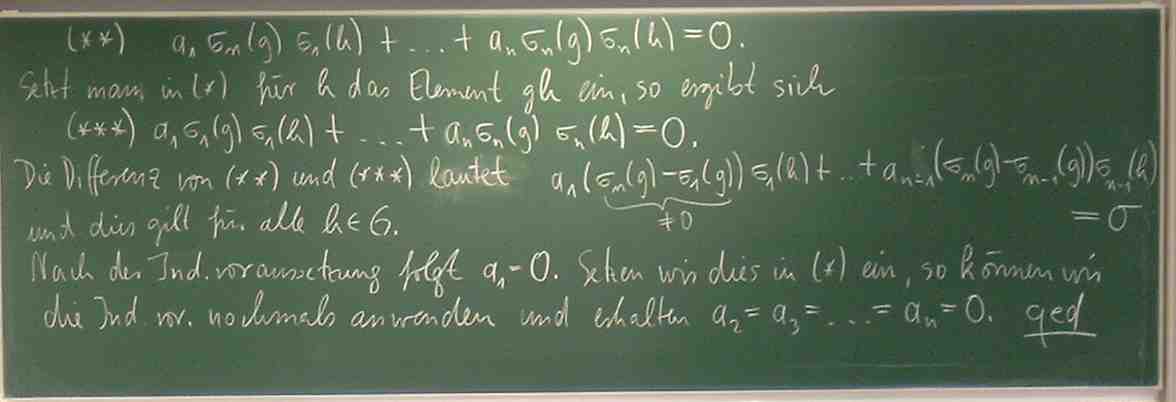 (**) a₁ σₙ(g) σ₁(h) + ... + aₙ σₙ(g) σₙ(h) = 0.
Setzt man in (*) für h das Element gh ein, so ergibt sich
(***) a₁ σ₁(g) σ₁(h) + ... + aₙ σₙ(g) σₙ(h) = 0.
Die Differenz von (**) und (***) lautet a₁(σₙ(g)-σ₁(g)) σ₁(h) + ... + aₙ₋₁(σₙ(g)-σₙ₋₁(g)) σₙ₋₁(h)
≠0
= 0
und dies gilt für alle h ∈ G.
Nach der Ind.voraussetzung folgt a₁ = 0. Setzen wir dies in (*) ein, so können wir
die Ind. vor. nochmals anwenden und erhalten a₂ = a₃ = ... = aₙ = 0. qed